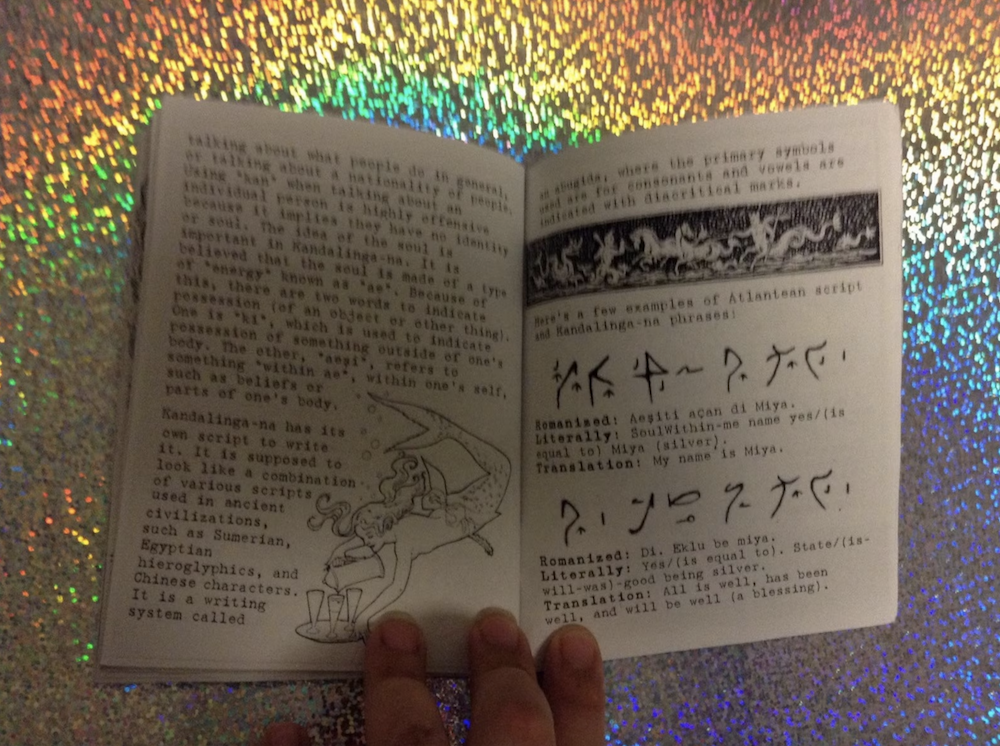 talking about what people do in general,
or talking about a nationality of people.
Using "kan" when talking about an
individual person is highly offensive
because it implies they have no identity
or soul. The idea of the soul is
important in Kandalinga-na. It is
believed that the soul is made of a type
of "energy" known as "ae". Because of
this, there are two words to indicate
possession (of an object or other thing).
One is "ki", which is used to indicate
possession of something outside of one's
body. The other, "aeşi", refers to
something "within ae", within one's self,
such as beliefs or
parts of one's body.
Kandalinga-na has its
own script to write
it. It is supposed to
look like a combination
of various scripts
used in ancient
civilizations,
such as Sumerian,
Egyptian
hieroglyphics, and
Chinese characters.
It is a writing
system called
an abugida, where the primary symbols
used are for consonants and vowels are
indicated with diacritical marks.
Here's a few examples of Atlantean script
and Kandalinga-na phrases!
Romanized: Aeşiti açan di Miya.
Literally: SoulWithin-me name yes/(is
equal to) Miya (silver).
Translation: My name is Miya.
Romanized: Di. Eklu be miya.
Literally: Yes/(is equal to). State/(is-
will-was)-good being silver.
Translation: All is well, has been
well, and will be well (a blessing).